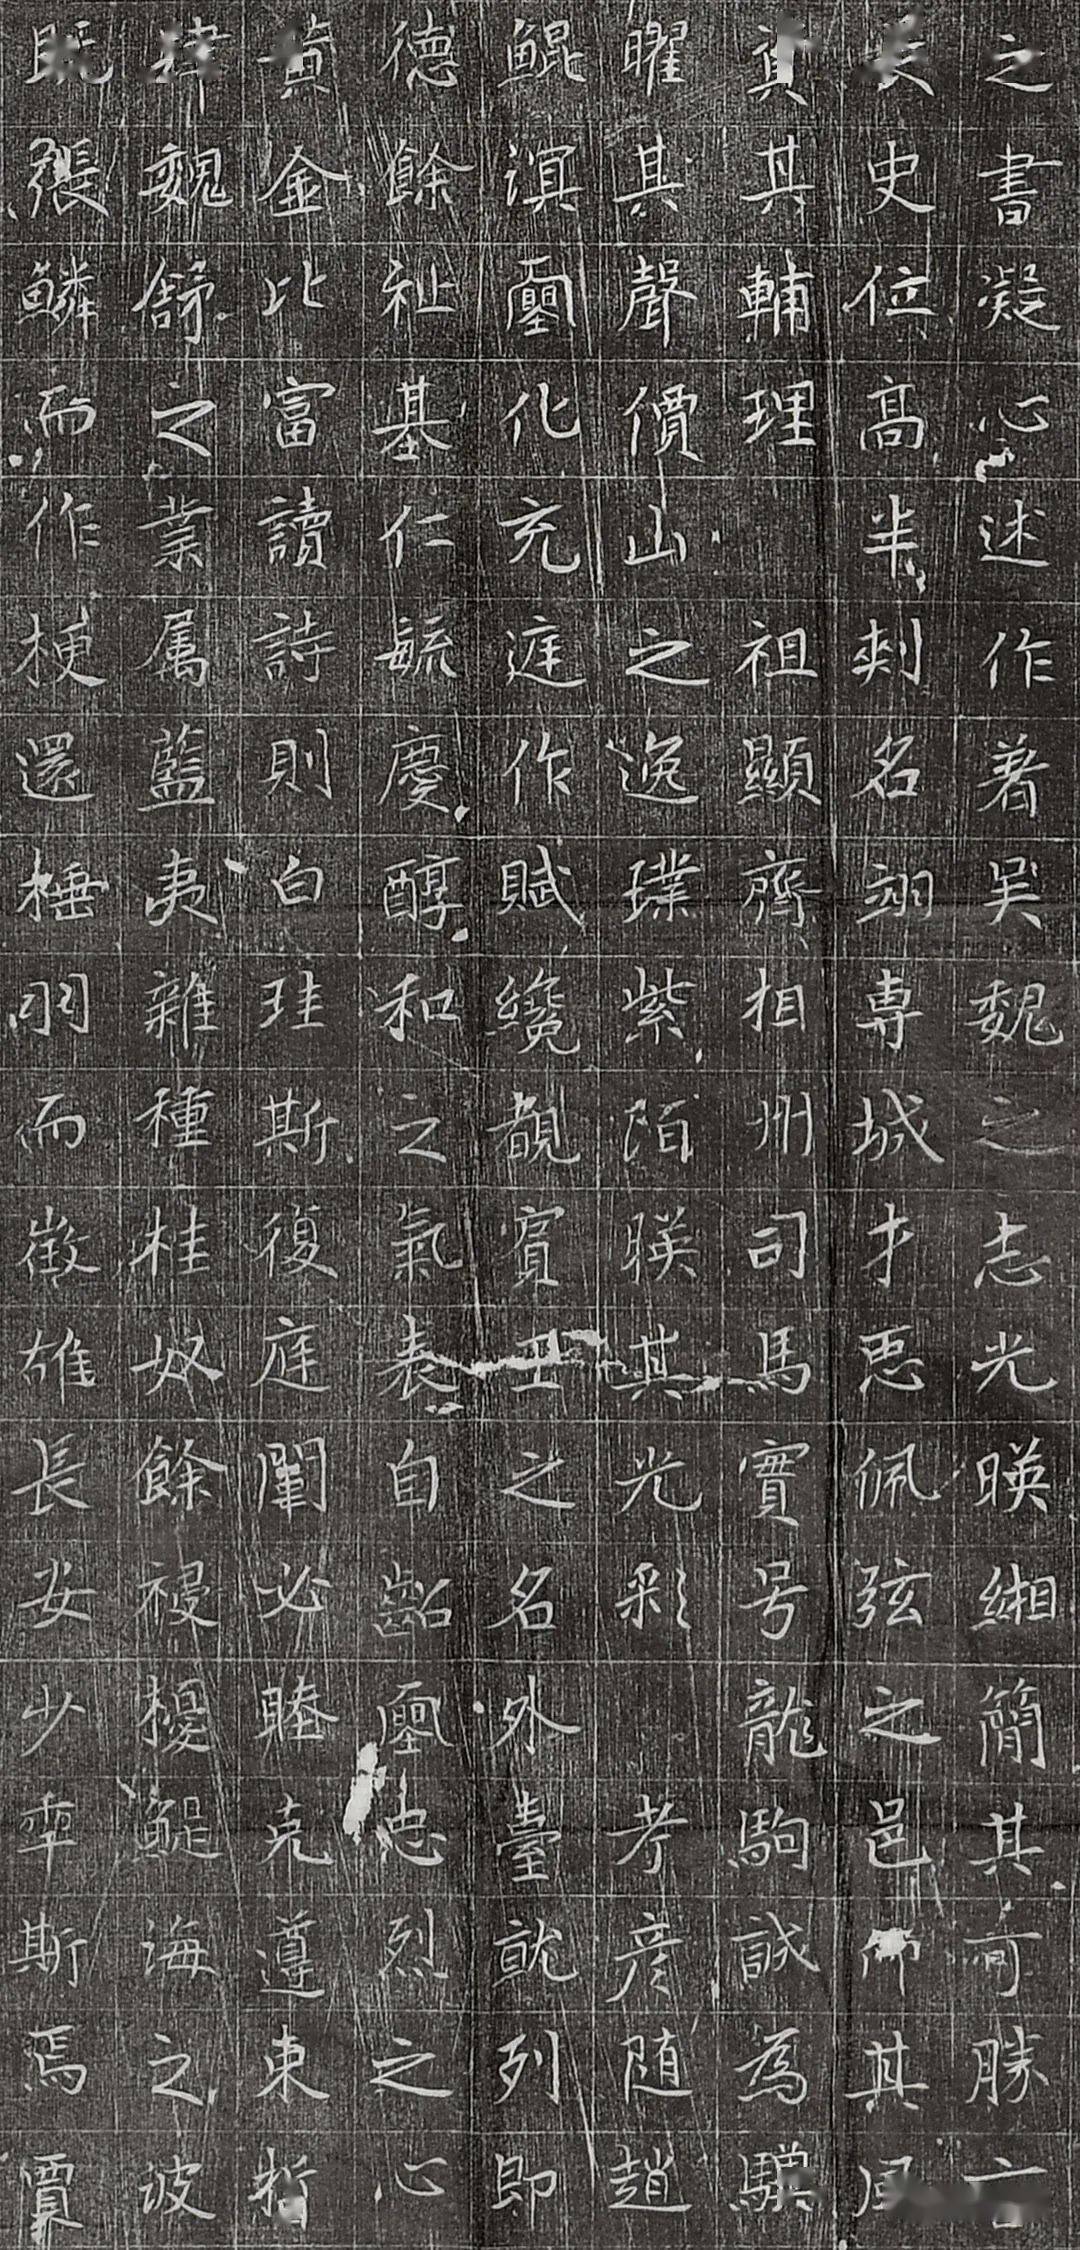 之書凝心述作著吴魏之志光暎緗簡其可勝言
史位高半剌名翊專城才思佩弦之邑其風
冀其輔理 祖顯齊相州司馬實号龍駒誠為驥
曜其聲價山之逸璞紫陌暎其光彩 考彦随趙
鯤溟圖化充庭作賦纔覩賓王之名外臺就列即
德餘祉基仁毓慶醇和之氣表自齠圖忠烈之心
黄金比富讀詩則白珪斯復庭闈必睦克遵東哲
韓魏舒之業属藍夷雜種桂奴餘祲擾鯷海之波
既張鱗而作梗還捶羽而徴雄長安少年斯焉賈